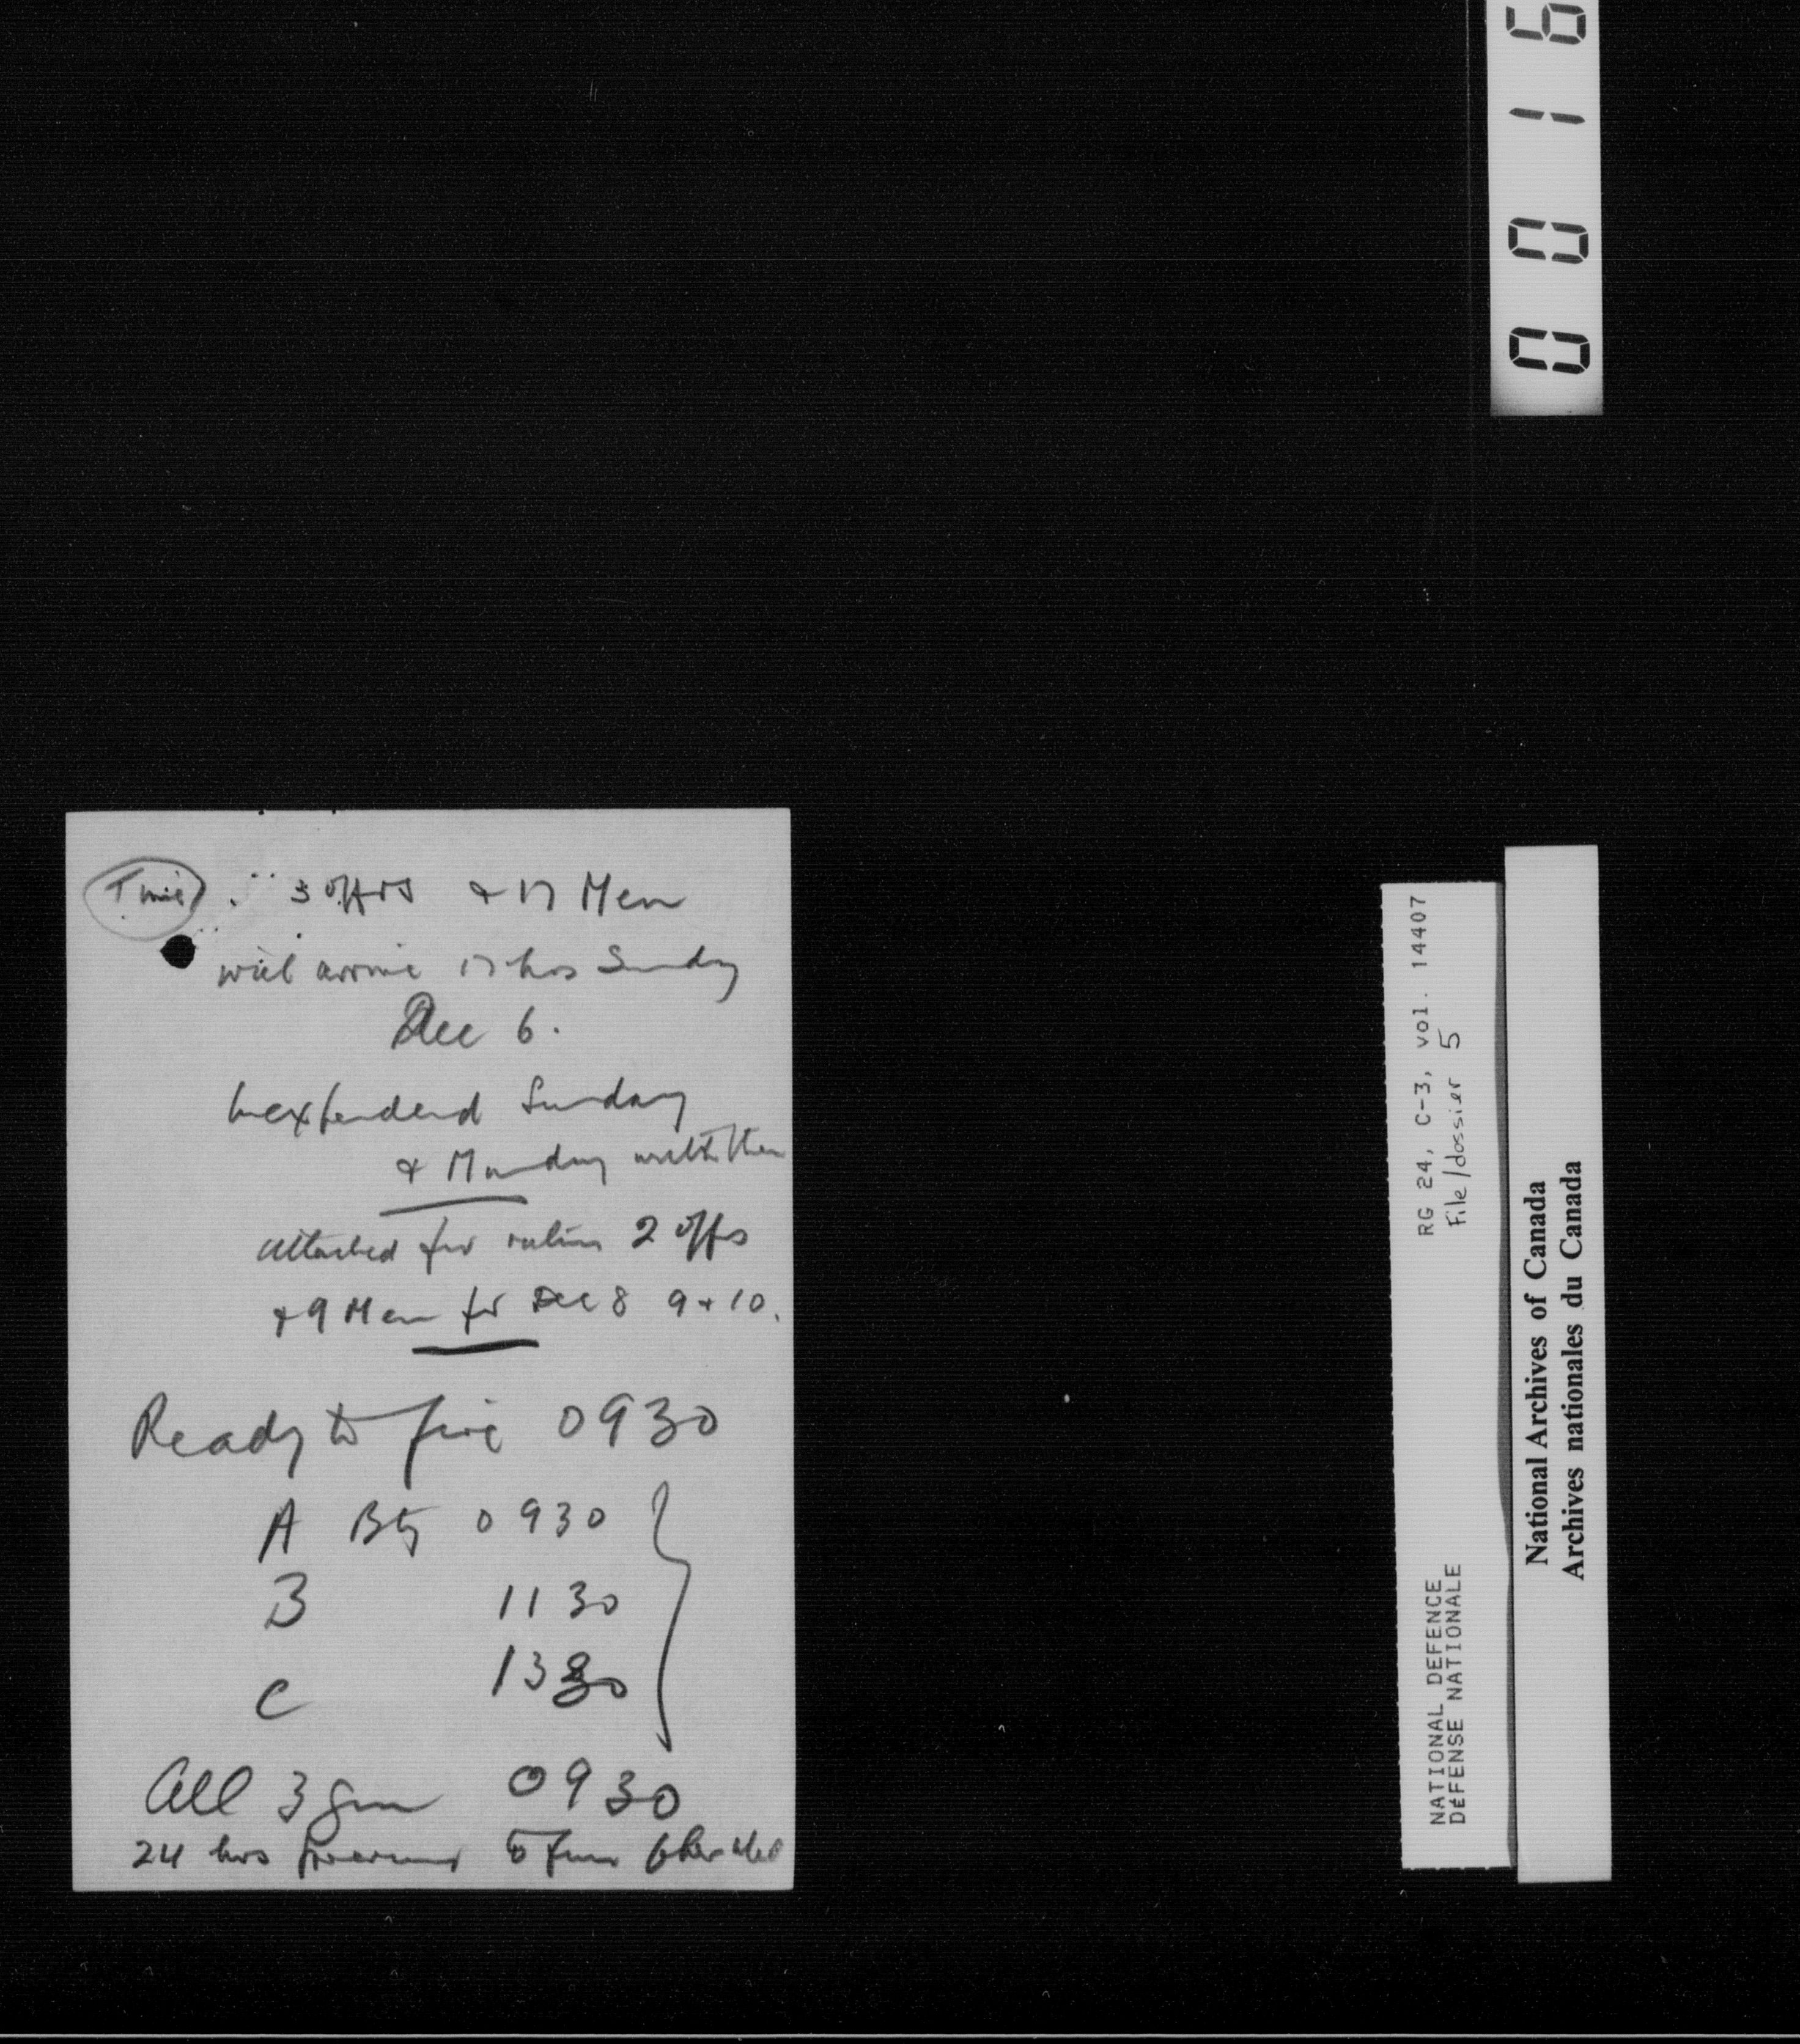 Time . 3 offrs & 17 Men
will arrive 17 hrs Sunday
Dec 6.
Sunday
& Monday
attached for rations 2 offs
& 9 Men for Dec 8 9 + 10.
Ready to fire 0930
A Bty 0930
B 1130
C 1330
All 3 gun 0930
24 hrs
0016
RG 24, C-3, vol. 14407
File/dossier 5
NATIONAL DEFENCE
DÉFENSE NATIONALE
National Archives of Canada
Archives nationales du Canada